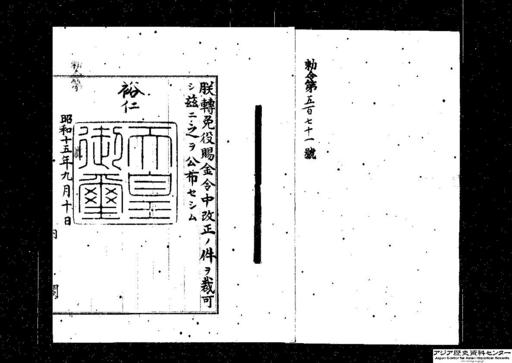 勅令第五百七十一號
朕轉免役賜金令中改正ノ件ヲ裁可
シ茲ニ之ヲ公布セシム
裕仁
天皇御璽
昭和十五年九月十日
アジア歴史資料センター
Japan Center for Asian Historical Records